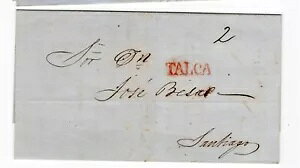 2
Sor Dn
TALCA
José Besa
Santiago